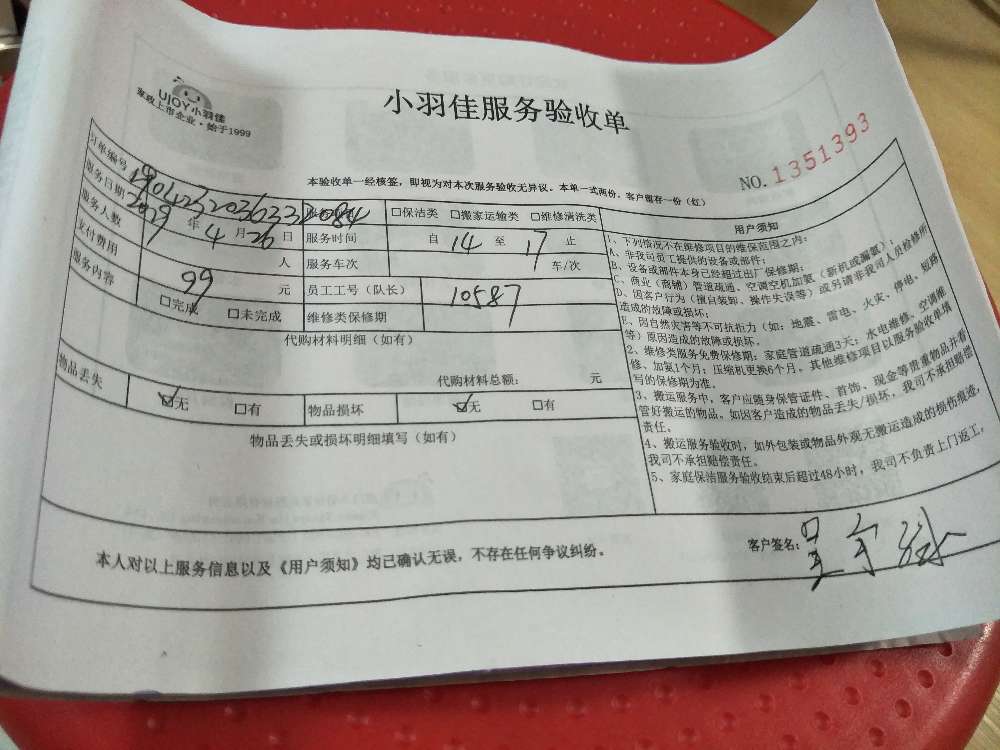 UJOY小羽佳
家政上市企业·始于1999
小羽佳服务验收单
NO. 1351393
本验收单一经核签，即视为对本次服务验收无异议。本单一式两份，客户留存一份（红）
订单编号
□保洁类 □搬家运输类 □维修清洗类
服务日期 2019 年 4 月 26 日 服务时间 自 14 至 17 止
服务人数 人 服务车次 车/次
支付费用 99 元 员工工号（队长） 10587
服务内容 □完成 □未完成 维修类保修期
代购材料明细（如有）
代购材料总额： 元
物品丢失 ☑无 □有 物品损坏 ☑无 □有
物品丢失或损坏明细填写（如有）
用户须知
1、下列情况不在维修项目的维保范围之内：
A、非我司员工提供的设备或部件；
B、设备或部件本身已经超过出厂保修期；
C、商业（商铺）管道疏通、空调空机加氨（新机或漏氨）；
D、因客户行为（擅自装卸、操作失误等）或另请非我司人员检修所
造成的故障或损坏；
E、因自然灾害等不可抗拒力（如：地震、雷电、火灾、停电、短路
等）原因造成的故障或损坏。
2、维修类服务免费保修期：家庭管道疏通3天；水电维修、空调维
修、加氨1个月；压缩机更换6个月，其他维修项目以服务验收单填
写的保修期为准。
3、搬运服务中，客户应随身保管证件、首饰、现金等贵重物品并看
管好搬运的物品。如因客户造成的物品丢失/损坏，我司不承担赔偿
责任。
4、搬运服务验收时，如外包装或物品外观无搬运造成的损伤痕迹，
我司不承担赔偿责任。
5、家庭保洁服务验收结束后超过48小时，我司不负责上门返工，
本人对以上服务信息以及《用户须知》均已确认无误，不存在任何争议纠纷。
客户签名：